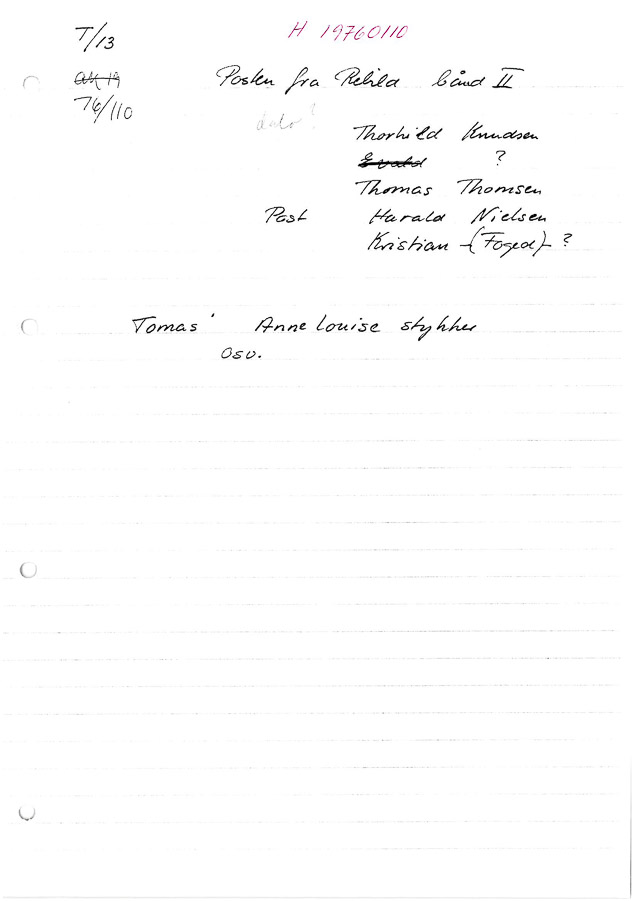 T/13
H 19760110
AK 19
76/110
Posten fra Rebild bånd II
dato?
Thorkild Knudsen
Evald ?
Thomas Thomsen
Post Harald Nielsen
Kristian (Foged) ?
Tomas' Anne Louise stykker
osv.